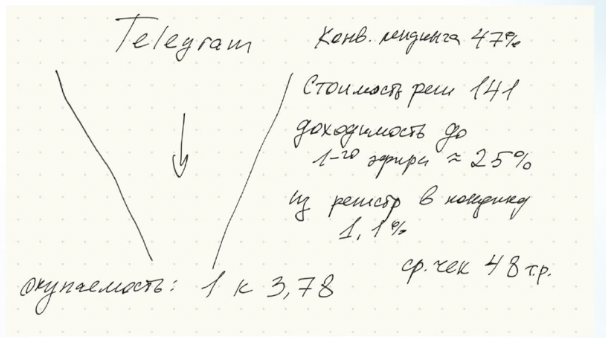 Telegram
Конв. лендинга 47%
Стоимость реги 141
доходимость до
1-го эфира ≈ 25%
из регистр в покупку
1,1%
ср. чек 48 т.р.
окупаемость: 1 к 3,78